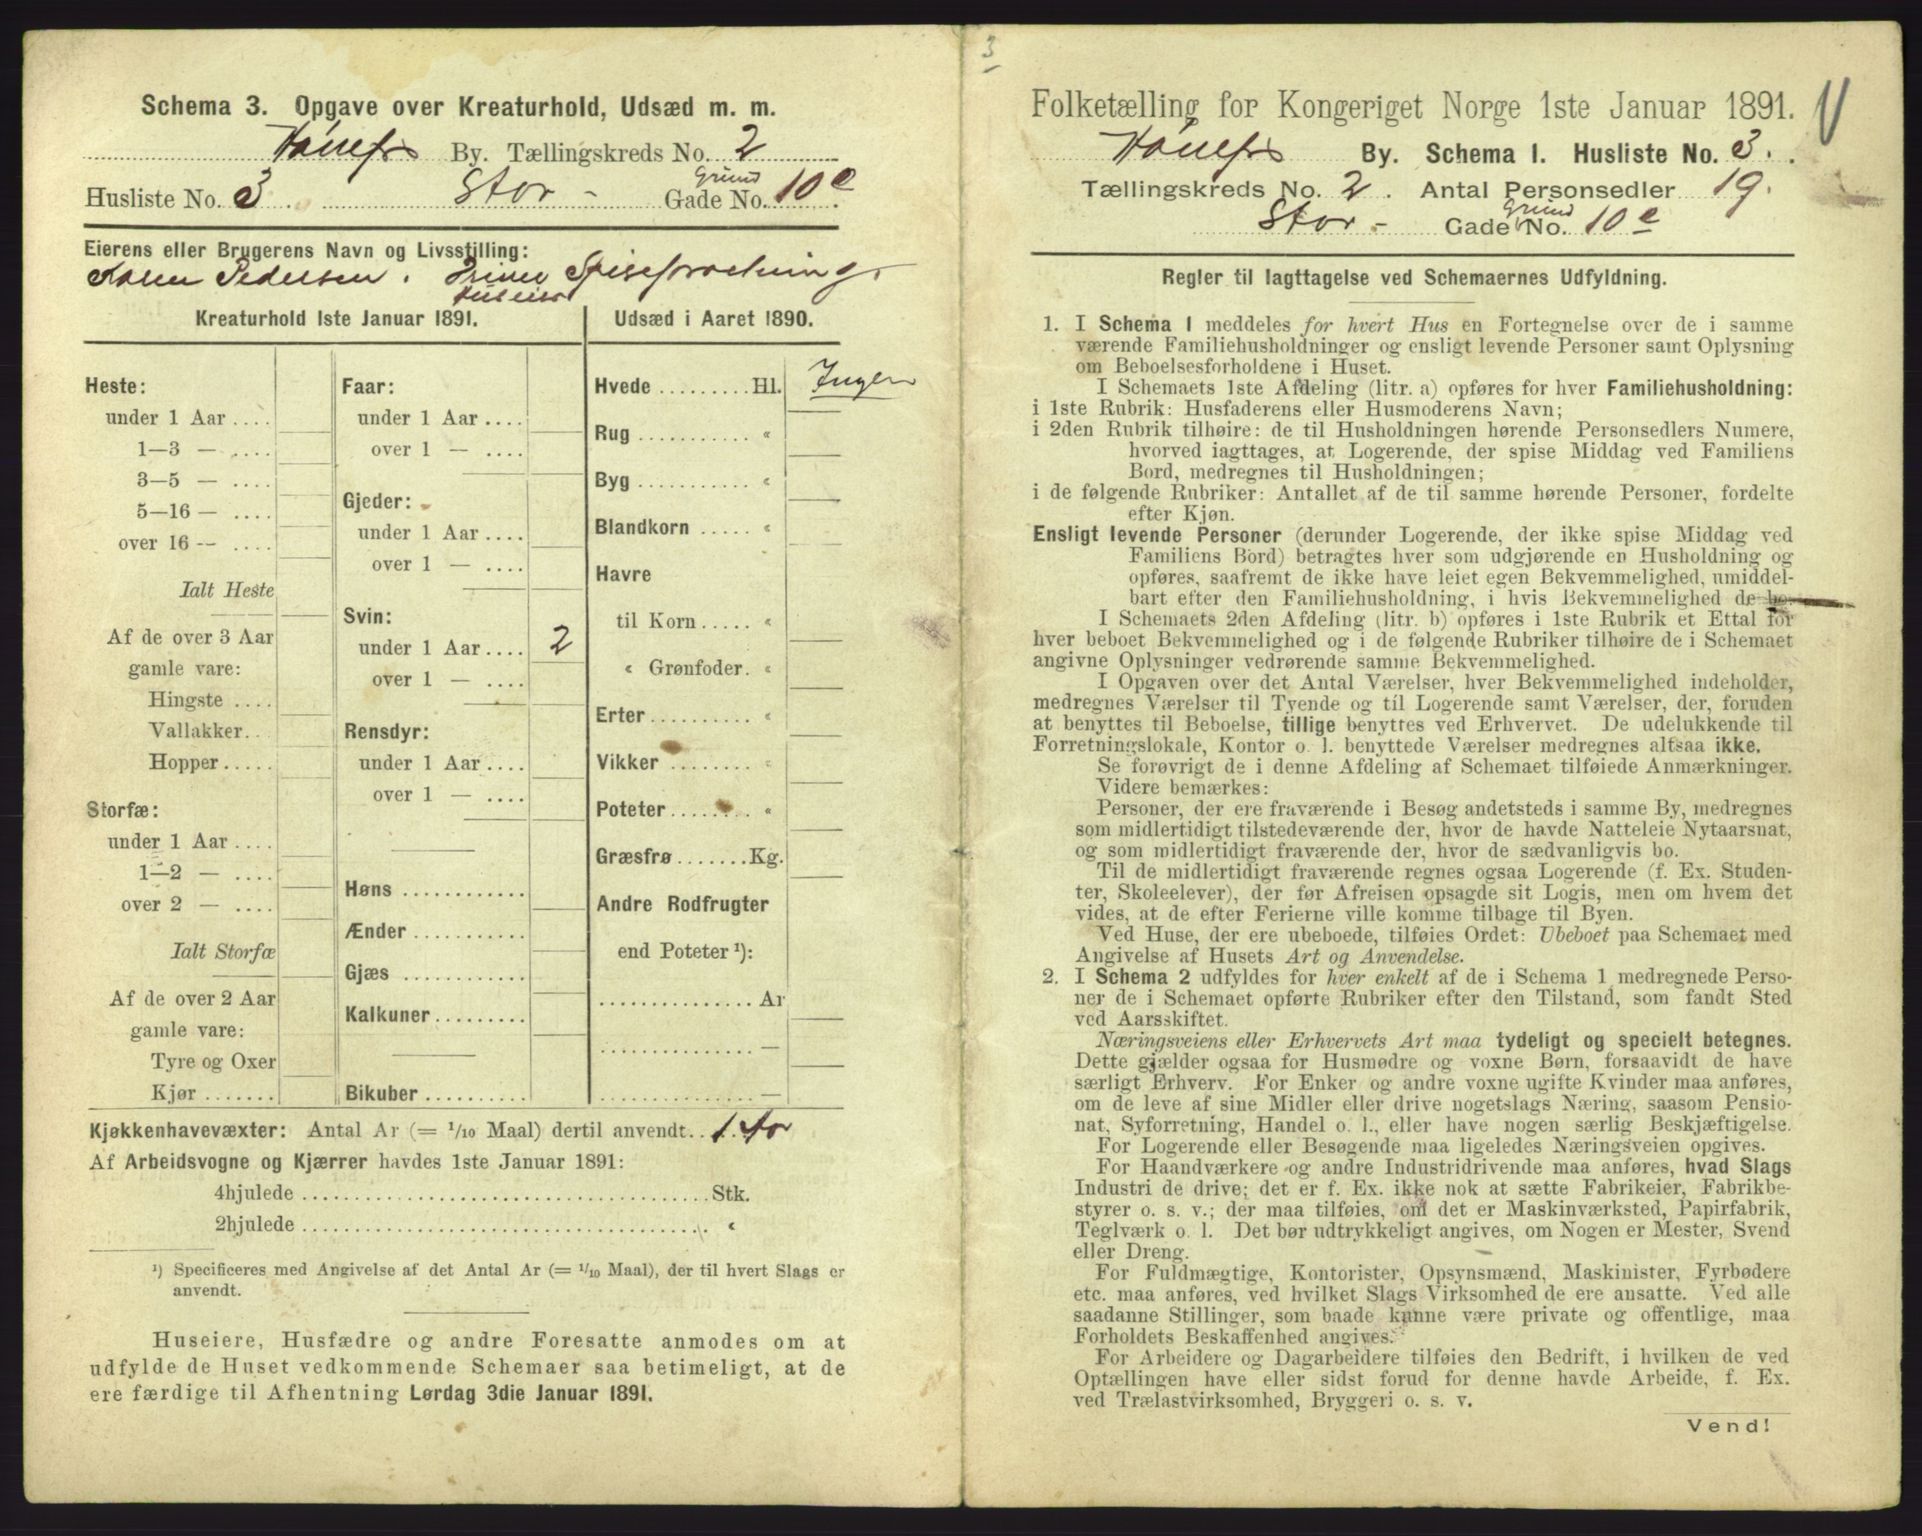 Schema 3. Opgave over Kreaturhold, Udsæd m. m.
Hønefos By. Tællingskreds No. 2
Husliste No. 3. Stor- Gade Grund No. 10e
Eierens eller Brugerens Navn og Livsstilling:
Karen Pedersen. Driver Spiseforretning.
Huseier
Kreaturhold 1ste Januar 1891.
Udsæd i Aaret 1890.
Heste:
under 1 Aar ....
1—3 — ....
3—5 — ....
5—16 — ....
over 16 — ....
Ialt Heste
Af de over 3 Aar
gamle vare:
Hingste ....
Vallakker..
Hopper.....
Storfæ:
under 1 Aar ....
1—2 — ....
over 2 — ....
Ialt Storfæ
Af de over 2 Aar
gamle vare:
Tyre og Oxer
Kjør .......
Faar:
under 1 Aar ....
over 1 — ....
Gjeder:
under 1 Aar ....
over 1 — ....
Svin:
under 1 Aar .... 2
over 1 — ....
Rensdyr:
under 1 Aar ....
over 1 — ....
Høns ............
Ænder ...........
Gjæs ............
Kalkuner.........
Bikuber..........
Hvede .........Hl. Ingen
Rug ........... «
Byg ........... «
Blandkorn ..... «
Havre
til Korn..... «
« Grønfoder. «
Erter.......... «
Vikker ........ «
Poteter........ «
Græsfrø.......Kg.
Andre Rodfrugter
end Poteter ¹):
................ Ar
................ —
................ —
Kjøkkenhavevæxter: Antal Ar (= 1/10 Maal) dertil anvendt.. 1 Ar
Af Arbeidsvogne og Kjærrer havdes 1ste Januar 1891:
4hjulede ........................................Stk.
2hjulede ........................................ «
¹) Specificeres med Angivelse af det Antal Ar (= 1/10 Maal), der til hvert Slags er
anvendt.
Huseiere, Husfædre og andre Foresatte anmodes om at
udfylde de Huset vedkommende Schemaer saa betimeligt, at de
ere færdige til Afhentning Lørdag 3die Januar 1891.
3
Folketælling for Kongeriget Norge 1ste Januar 1891.
Hønefos By. Schema 1. Husliste No. 3.
Tællingskreds No. 2. Antal Personsedler 19.
Stor- Gade Grund No. 10e
Regler til Iagttagelse ved Schemaernes Udfyldning.
1. I Schema 1 meddeles for hvert Hus en Fortegnelse over de i samme
værende Familiehusholdninger og ensligt levende Personer samt Oplysning
om Beboelsesforholdene i Huset.
I Schemaets 1ste Afdeling (litr. a) opføres for hver Familiehusholdning:
i 1ste Rubrik: Husfaderens eller Husmoderens Navn;
i 2den Rubrik tilhøire: de til Husholdningen hørende Personsedlers Numere,
hvorved iagttages, at Logerende, der spise Middag ved Familiens
Bord, medregnes til Husholdningen;
i de følgende Rubriker: Antallet af de til samme hørende Personer, fordelte
efter Kjøn.
Ensligt levende Personer (derunder Logerende, der ikke spise Middag ved
Familiens Bord) betragtes hver som udgjørende en Husholdning og
opføres, saafremt de ikke have leiet egen Bekvemmelighed, umiddel-
bart efter den Familiehusholdning, i hvis Bekvemmelighed de bo.
I Schemaets 2den Afdeling (litr. b) opføres i 1ste Rubrik et Ettal for
hver beboet Bekvemmelighed og i de følgende Rubriker tilhøire de i Schemaet
angivne Oplysninger vedrørende samme Bekvemmelighed.
I Opgaven over det Antal Værelser, hver Bekvemmelighed indeholder,
medregnes Værelser til Tyende og til Logerende samt Værelser, der, foruden
at benyttes til Beboelse, tillige benyttes ved Erhvervet. De udelukkende til
Forretningslokale, Kontor o. l. benyttede Værelser medregnes altsaa ikke.
Se forøvrigt de i denne Afdeling af Schemaet tilføiede Anmærkninger.
Videre bemærkes:
Personer, der ere fraværende i Besøg andetsteds i samme By, medregnes
som midlertidigt tilstedeværende der, hvor de havde Natteleie Nytaarsnat,
og som midlertidigt fraværende der, hvor de sædvanligvis bo.
Til de midlertidigt fraværende regnes ogsaa Logerende (f. Ex. Studen-
ter, Skoleelever), der før Afreisen opsagde sit Logis, men om hvem det
vides, at de efter Ferierne ville komme tilbage til Byen.
Ved Huse, der ere ubeboede, tilføies Ordet: Ubeboet paa Schemaet med
Angivelse af Husets Art og Anvendelse.
2. I Schema 2 udfyldes for hver enkelt af de i Schema 1 medregnede Perso-
ner de i Schemaet opførte Rubriker efter den Tilstand, som fandt Sted
ved Aarsskiftet.
Næringsveiens eller Erhvervets Art maa tydeligt og specielt betegnes.
Dette gjælder ogsaa for Husmødre og voxne Børn, forsaavidt de have
særligt Erhverv. For Enker og andre voxne ugifte Kvinder maa anføres,
om de leve af sine Midler eller drive nogetslags Næring, saasom Pensio-
nat, Syforretning, Handel o. l., eller have nogen særlig Beskjæftigelse.
For Logerende eller Besøgende maa ligeledes Næringsveien opgives.
For Haandværkere og andre Industridrivende maa anføres, hvad Slags
Industri de drive; det er f. Ex. ikke nok at sætte Fabrikeier, Fabrikbe-
styrer o. s. v.; der maa tilføies, om det er Maskinværksted, Papirfabrik,
Teglværk o. l. Det bør udtrykkeligt angives, om Nogen er Mester, Svend
eller Dreng.
For Fuldmægtige, Kontorister, Opsynsmænd, Maskinister, Fyrbødere
etc. maa anføres, ved hvilket Slags Virksomhed de ere ansatte. Ved alle
saadanne Stillinger, som baade kunne være private og offentlige, maa
Forholdets Beskaffenhed angives.
For Arbeidere og Dagarbeidere tilføies den Bedrift, i hvilken de ved
Optællingen have eller sidst forud for denne havde Arbeide, f. Ex.
ved Trælastvirksomhed, Bryggeri o. s. v.
Vend!